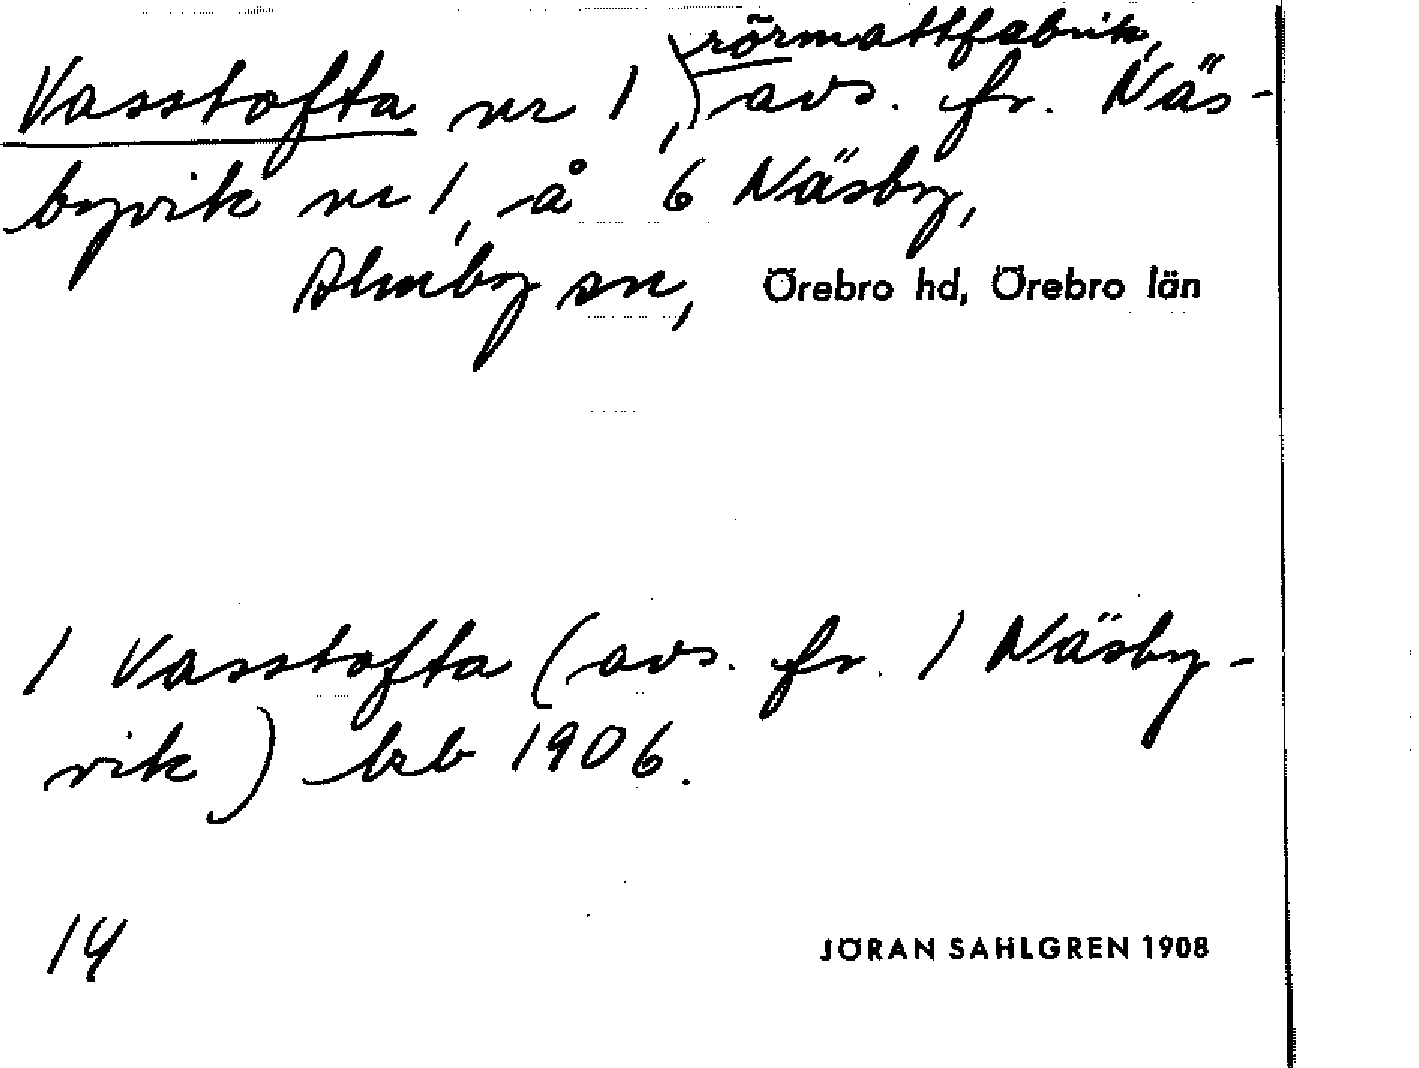 rörmattfabrik,
Vasstofta nr 1, avs. fr. Näs-
byvik nr 1, å 6 Näsby,
Almby sn, Örebro hd, Örebro län
1 Vasstofta (avs. fr. 1 Näsby-
vik) brb 1906.
14
JÖRAN SAHLGREN 1908